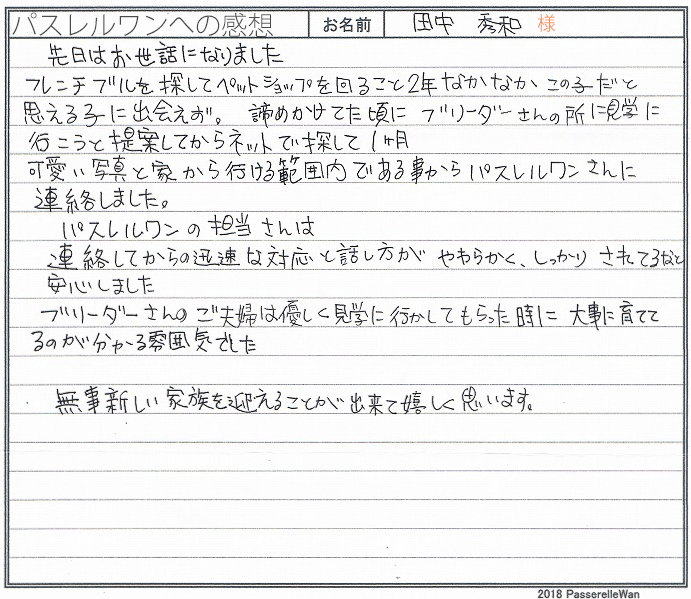 パスレルワンへの感想 お名前 田中 秀和 様
先日はお世話になりました
フレンチブルを探してペットショップを回ること2年なかなかこの子だと
思える子に出会えず。諦めかけてた頃にブリーダーさんの所に見学に
行こうと提案してからネットで探して1ヶ月
可愛い写真と家から行ける範囲内である事からパスレルワンさんに
連絡しました。
パスレルワンの担当さんは
連絡してからの迅速な対応と話し方がやわらかく、しっかりされてるなと
安心しました
ブリーダーさんのご夫婦は優しく見学に行かしてもらった時に大事に育てて
るのが分かる雰囲気でした
無事新しい家族を迎えることが出来て嬉しく思います。
2018 PasserelleWan